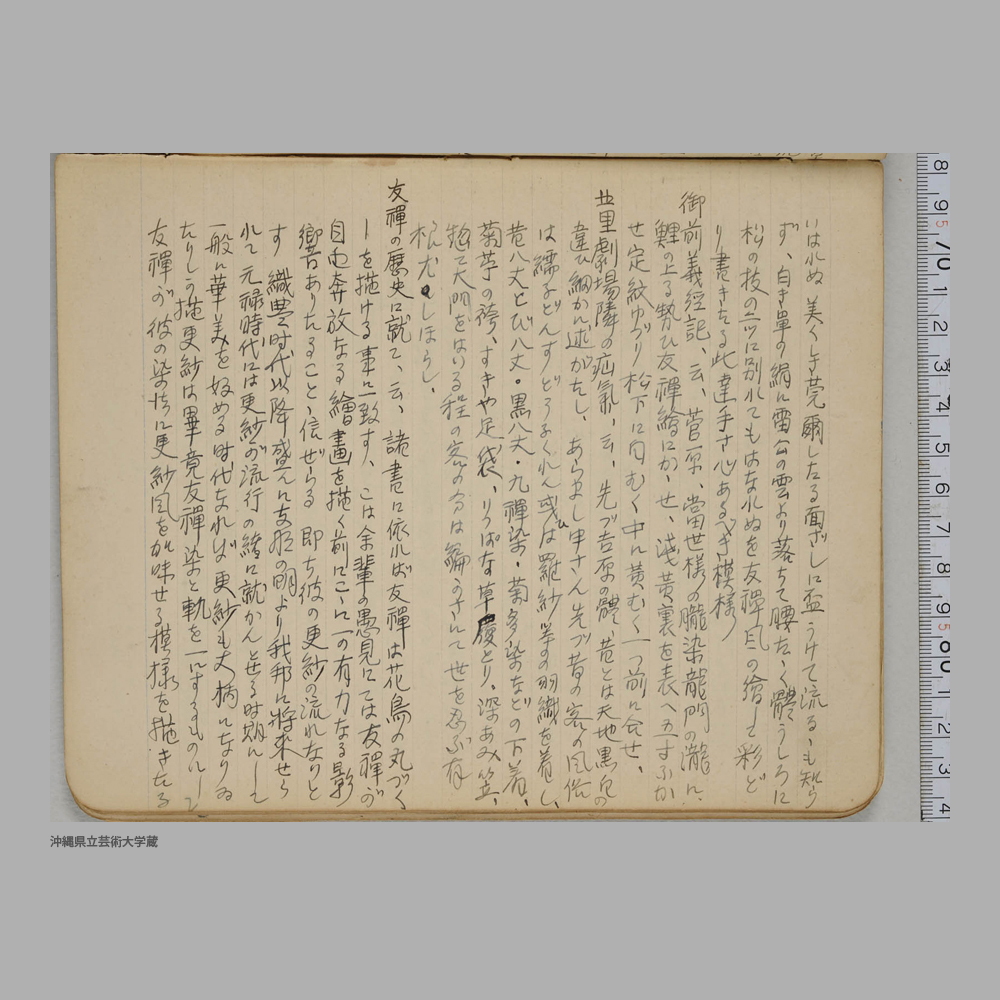 いはれぬ美くしき莞爾したる面ざしに盃うけて流るゝも知ら
ず、白き單の絹に雷公の雲より落ちて腰たゝく體うしろに
松の枝の二ツに別れてもはなれぬを友禪風の繪して彩ど
り書きたる此達手さ心あるべき模様
御前義經記、云、菅平、當世様の朧染龍門の瀧に、
鯉の上る勢ひ友禪繪にかゝせ、浅黄裏を表へ五すぶか
せ定紋ゆづり松下に向むく中に黄むく一つ前に合せ、
世里劇場隣の疝氣、云、先づ吉原の體昔とは天地黒白の
違ひ細かに述がたし、あらまし申さん先づ昔の客の風俗
は繻子どんすどろめくれん或は羅紗等の羽織を着し、
昔八丈とび八丈・黒八丈・九禪染・菊多染などの下着、
菊苧の袴、すきや足袋、りつぱな草履とり、深あみ笠、
惣て大門をはいる程の客の分は編のきにて世を忍ぶ有
様尤しほらし、
友禪の歴史に就て、云、諸書に依れば友禪は花鳥の丸づく
しを描ける事に一致す、こは余輩の愚見にては友禪が
自由奔放なる繪畫を描く前にこゝに一の有力なる影
響ありたること、信ぜらる 即ち彼の更紗の流れなりと
す 織豊時代以降盛んに支那の明より我邦に將來せら
れて 元禄時代には更紗が流行の緒に就かんとせる時期にして
一般に華美を好める時代なれば更紗も丈柄になりゐ
たりしう描更紗は畢竟友禪染と軌を一にするものにして
友禪が彼の染法に更紗風を加味せる模様を描きたる
8 9 10 1 2 3 4 5 6 7 8 9 20 1 2 3 4
沖縄県立芸術大学蔵